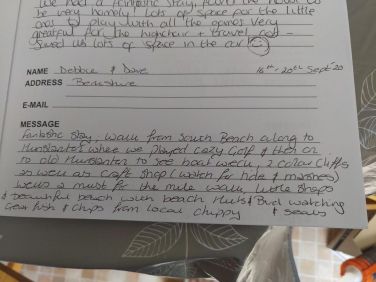 we had a fantastic stay, found the house to
be very homely. Lots of space for the little
ones to play with all the games. Very
greatful for the highchair & travel cot -
Saved us lots of space in the car
NAME Debbie & Dave 16th - 20th Sept 20
ADDRESS Berkshire
E-MAIL
MESSAGE
Fantastic Stay, walk from South Beach along to
Hunstanton where we played Crazy Golf & then on
to old Hunstanton to see boat wreck, 2 colour Cliffs
as well as craft shop (watch for tide & marshes)
Wells a must for the mile walk, little shops
& beautiful beach with beach Huts & Bird watching
Great Fish & Chips from local chippy & seals